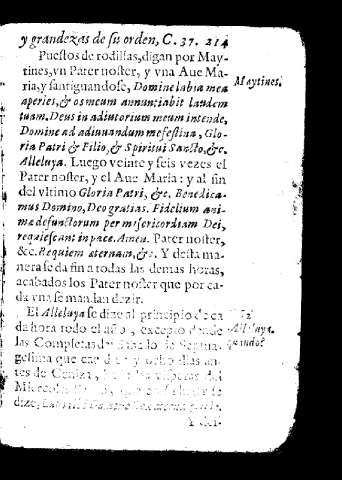 y grandezas de su orden, C. 37. 214
Puestos de rodillas, digan por May-
tines, vn Pater noster, y vna Aue Ma-
ria, y santiguandose, Domine labia mea
aperies, & os meum annuntiabit laudem
tuam. Deus in adiutorium meum intende,
Domine ad adiuuandum me festina, Glo-
ria Patri & Filio, & Spiritui Sancto, &c.
Alleluya. Luego veinte y seis vezes el
Pater noster, y el Aue Maria: y al fin
del vltimo Gloria Patri, &c. Benedica-
mus Domino, Deo gratias. Fidelium ani-
mæ defunctorum per misericordiam Dei,
requiescant in pace. Amen. Pater noster,
&c. Requiem æternam, &c. Y desta ma-
nera se da fin a todas las demas horas,
acabados los Pater noster que por ca-
da vna se mandan dezir.
El Alleluya se dize al principio de ca
da hora todo el año, excepto desde
las Completas del
gesima que cae diez y ocho dias an-
tes de Ceniza,
Miercoles
dize,
Maytines.
Alleluya.
quando?